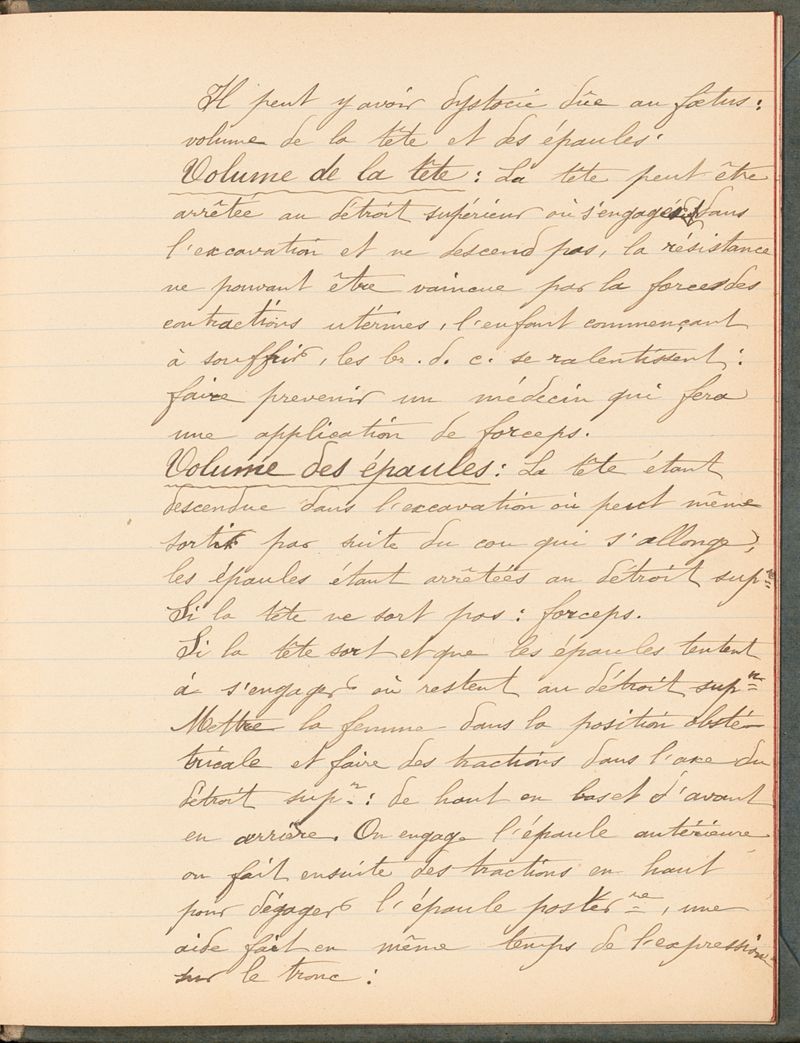 Il peut y avoir dystocie dûe au fœtus :
volume de la tête et des épaules.
Volume de la tête : La tête peut être
arrêtée au détroit supérieur où s'engager dans
l'excavation et ne descend pas, la résistance
ne pouvant être vaincue par la forces des
contractions utérines, l'enfant commençant
à souffrir, les br. d. c. se ralentissent :
faire prevenir un médecin qui fera
une application de forceps.
Volume des épaules : La tête étant
descendue dans l'excavation où peut même
sortir par suite du cou qui s'allonge,
les épaules étant arrêtées au détroit sup.r
Si la tête ne sort pas : forceps.
Si la tête sort et que les épaules tentent
à s'engager où restent au détroit sup.r
Mettre la femme dans la position obsté-
tricale et faire des tractions dans l'axe du
détroit sup.r : de haut en bas et d'avant
en arrière. On engage l'épaule antérieure
on fait ensuite des tractions en haut
pour dégager l'épaule postér.re, une
aide fait en même temps de l'expression
sur le tronc :